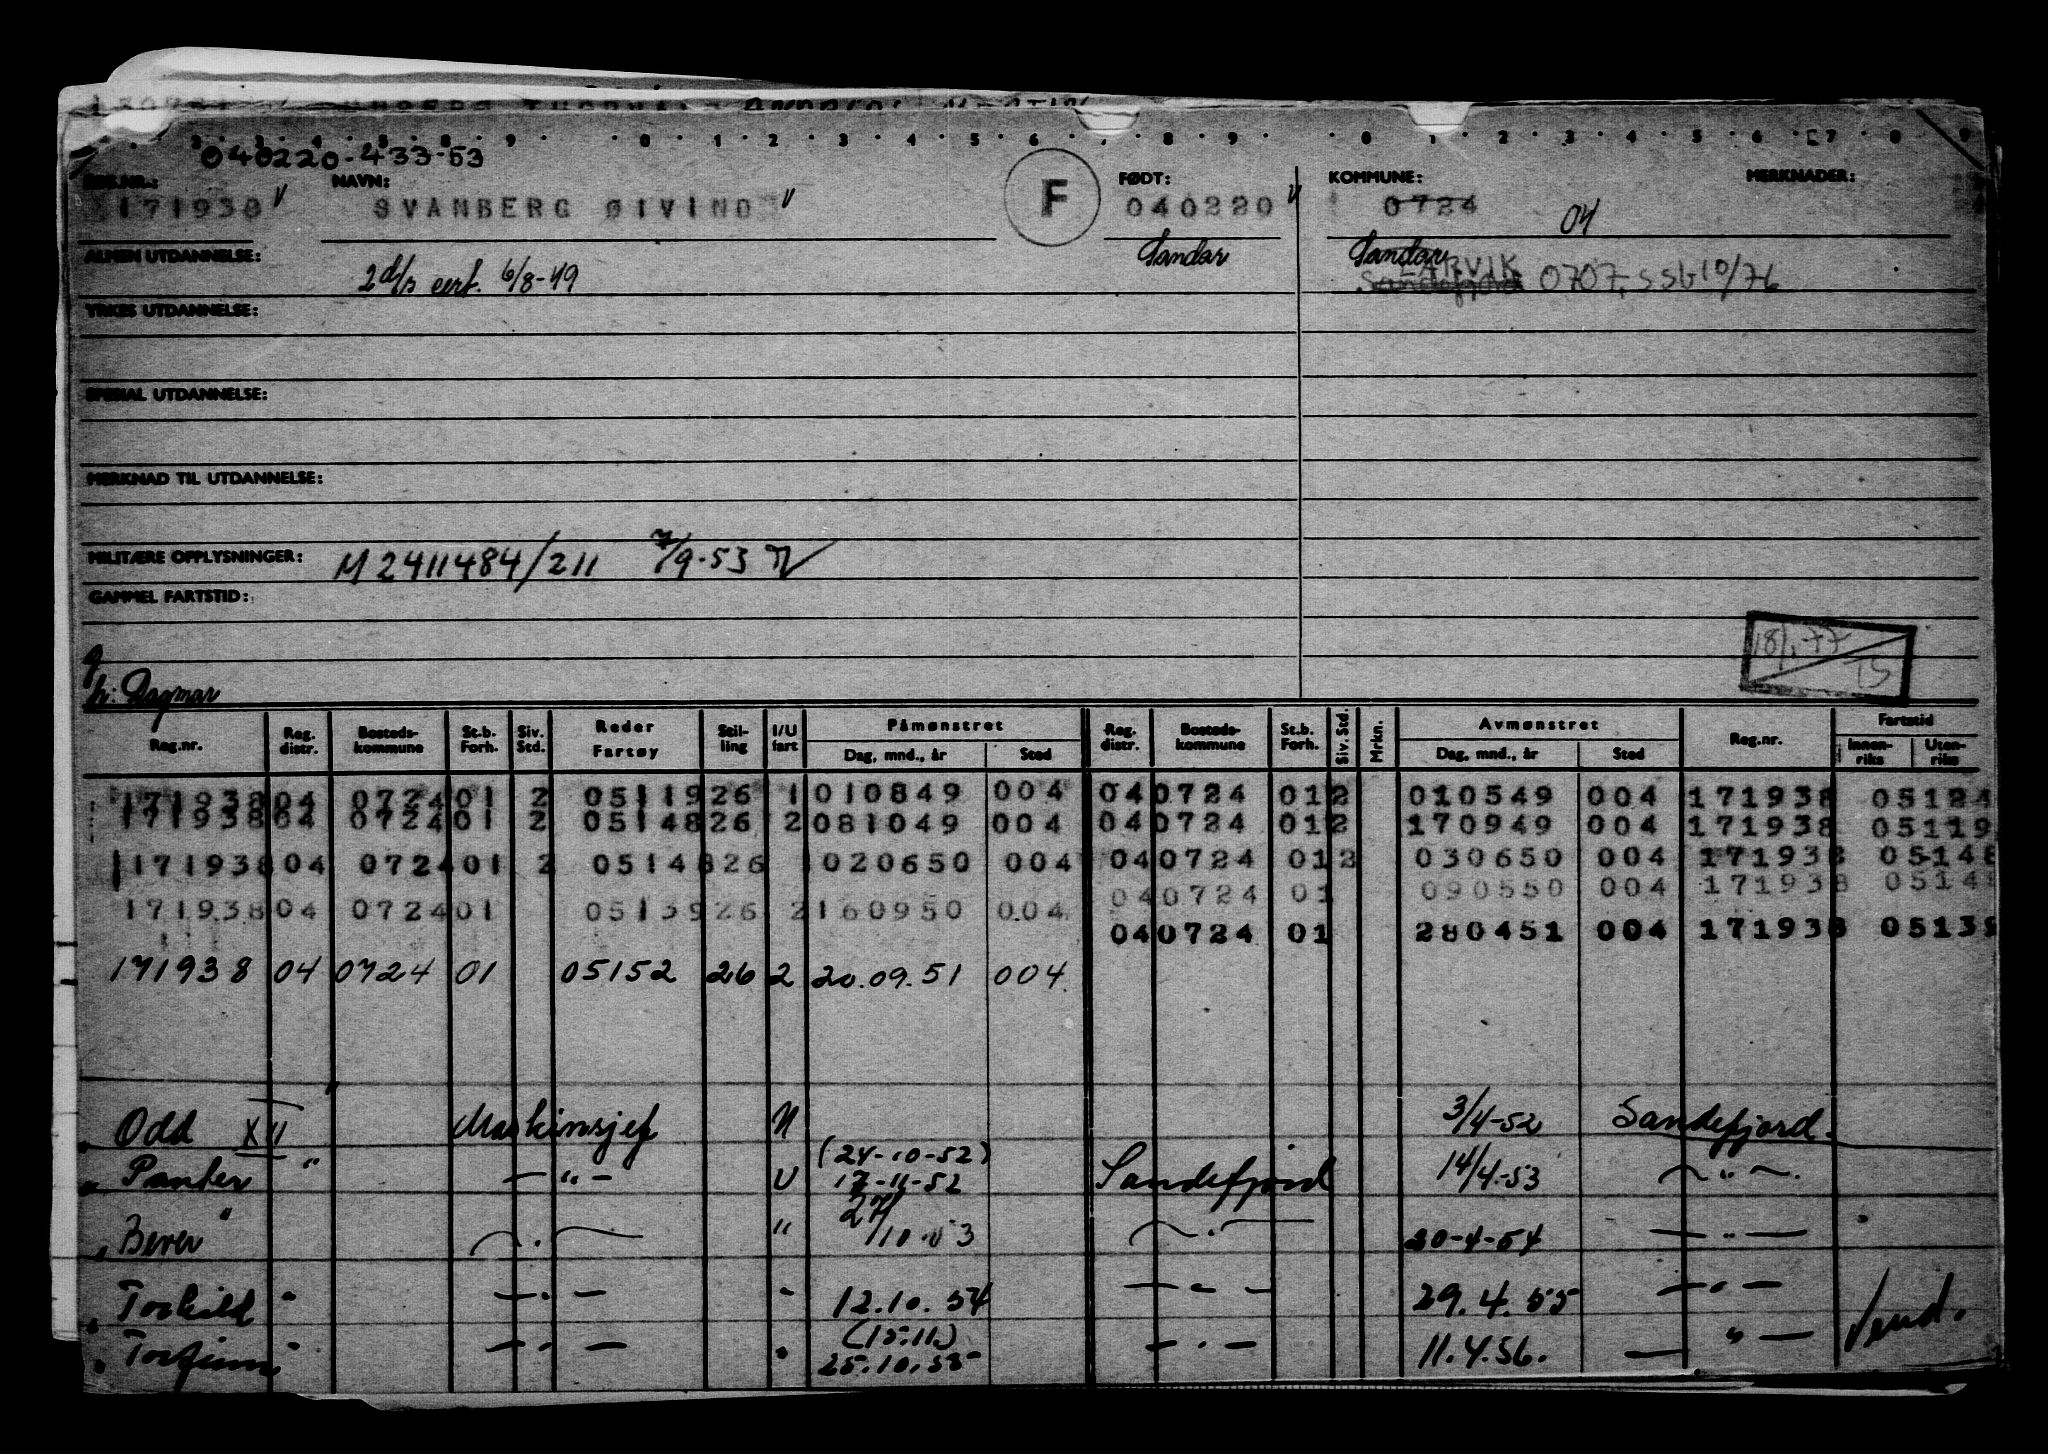 040220-433-53
REG.NR.: NAVN: FØDT: KOMMUNE: MERKNADER:
171938 v SVAMBERG ØIVIND v F 040220 v 0724 04
ALMEN UTDANNELSE: 2d/s cert. 6/8-49 Sandar Sandar
LARVIK
Sandefjord 0707, SSb 10/76
YRKES UTDANNELSE:
SPESIAL UTDANNELSE:
MERKNAD TIL UTDANNELSE:
MILITÆRE OPPLYSNINGER: M 2411484/211 7/9-53
GAMMEL FARTSTID:
18/1-77 TS
h: Dagmar
Reg.nr. Reg. distr. Bosteds-kommune St.b. Forh. Siv. Std. Reder Fartøy Stil-ling I/U fart Påmønstret Dag, mnd., år Sted Reg. distr. Bosteds-kommune St.b. Forh. Siv. Std. Mrkn. Avmønstret Dag, mnd., år Sted Reg.nr. Fartstid Innen-riks Uten-riks
171938 04 0724 01 2 05119 26 1 010849 004 04 0724 01 2 010549 004 171938 05124
171938 04 0724 01 2 05148 26 2 081049 004 04 0724 01 2 170949 004 171938 05119
171938 04 0724 01 2 05148 26 020650 004 04 0724 01 2 030650 004 171938 05148
04 0724 01 090550 004 171938 0514
171938 04 0724 01 05139 26 2 160950 004
04 0724 01 280451 004 171938 05139
171938 04 0724 01 05152 26 2 20.09.51 004
" Odd XII Maskinsjef U 3/4-52 Sandefjord.
(24-10-52)
" Panter " — " — U 17-11-52 Sandefjord 14/4-53 — " —.
" Bever " — " — " 27/10-53 — " — 20-4-54 — " —
" Torkild " — " — " 12.10.54 — " — 29.4.55 — " —
(15.11.)
" Torfinn " — " — " 25.10.55 — " — 11.4.56. — " —
/vend.